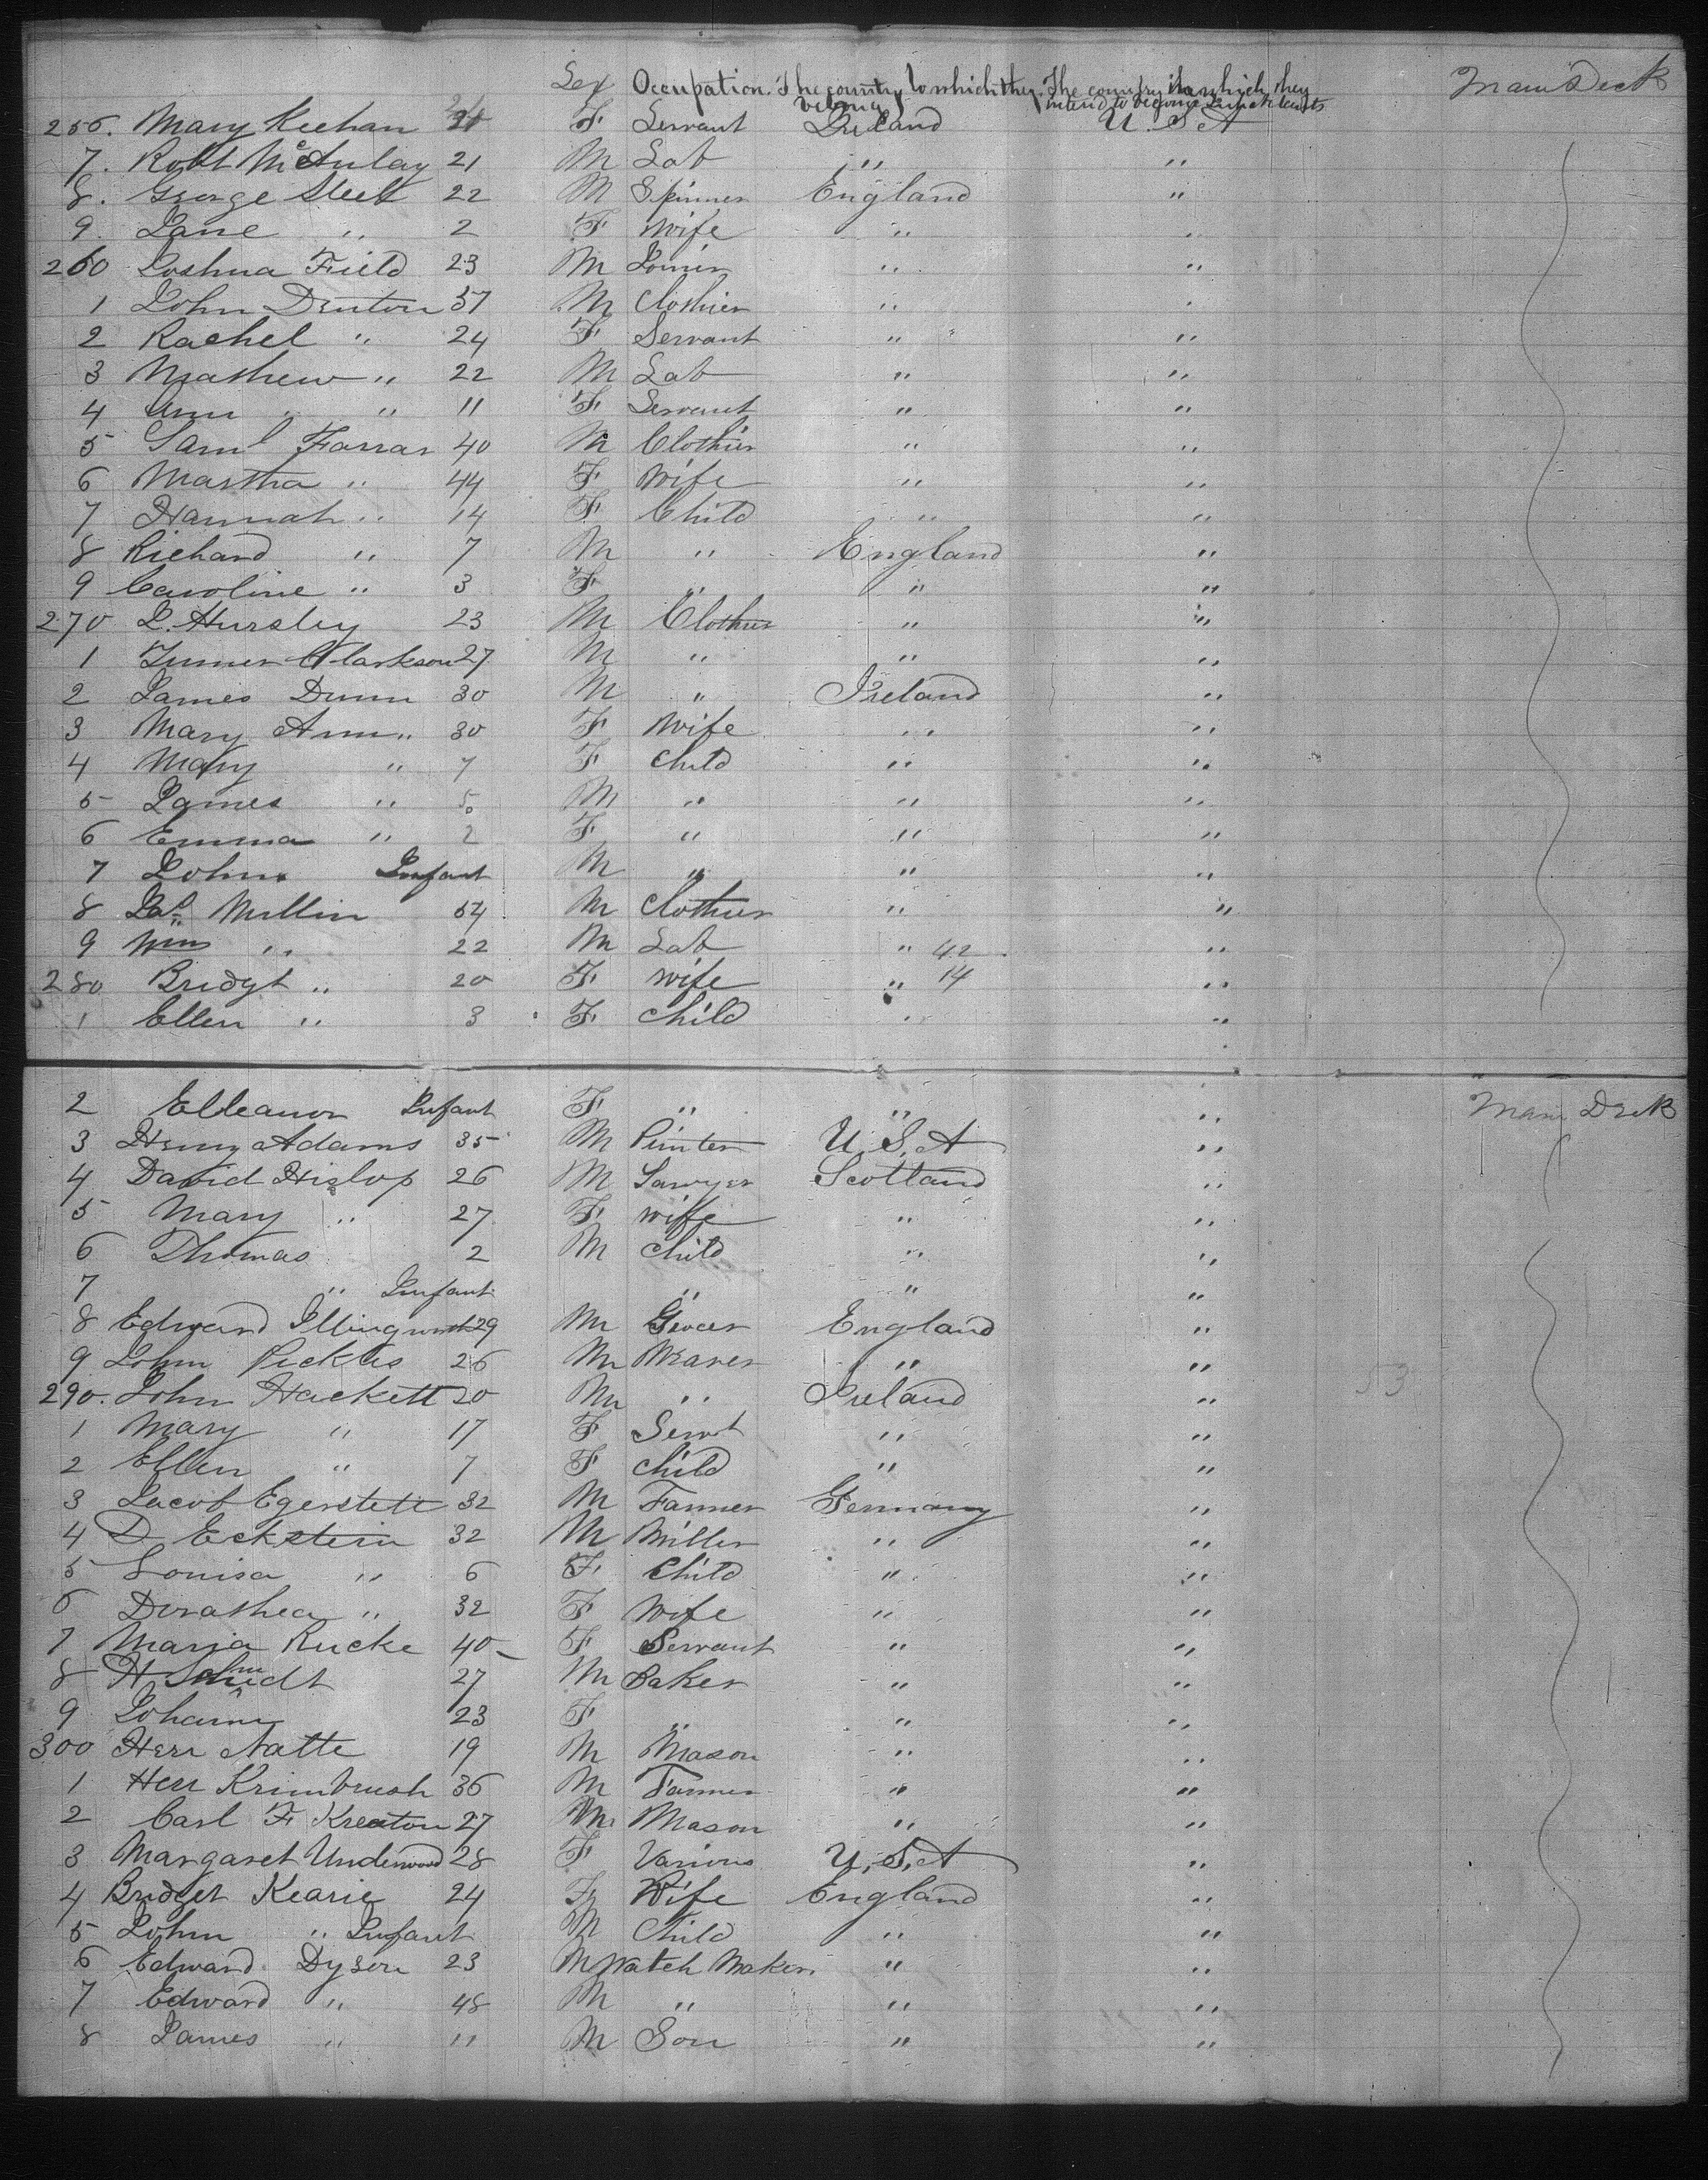 Sex Occupation. The country to which they The country in which they Main Deck
belong intend to become inhabitants
256. Mary Keehan F Servant Ireland U.S.A
7. Robt McAulay 21 M Lab " "
8. George Steel 22 M Spinner England "
9. Jane " 2 F Wife " "
260 Joshua Field 23 M Joiner " "
1 John Denton 57 M Clothier " "
2 Rachel " 24 F Servant " "
3 Mathew " 22 M Lab " "
4 Ann " 11 F Servant " "
5 Saml Farrar 40 M Clothier " "
6 Martha " 44 F Wife " "
7 Hannah " 14 F Child " "
8 Richard " 7 M " England "
9 Caroline " 3 F " " "
270 J. Hursley 23 M Clothier " "
1 Turner Clarkson 27 M " " "
2 James Dunn 30 M " Ireland "
3 Mary Ann " 30 F Wife " "
4 Mary " 7 F Child " "
5 James " 5 M " " "
6 Emma " 2 F " " "
7 John Infant M " " "
8 Jas Mullin 54 M Clothier " "
9 Wm " 22 M Lab " 42 "
280 Bridgt " 20 F wife " 14 "
1 Ellen " 3 F Child " "
2 Elleanor Infant F " " " Main Deck
3 Henry Adams 35 M Printer U.S.A "
4 David Hislop 26 M Sawyer Scotland "
5 Mary " 27 F wife " "
6 Thomas 2 M Child " "
7 " Infant " " "
8 Edward Illingworth 29 M Grocer England "
9 John Pickles 26 M Weaver " "
290. John Hackett 20 M " Ireland "
1 Mary " 17 F Servt " "
2 Ellen " 7 F Child " "
3 Jacob Egerstett 32 M Farmer Germany "
4 D Eckstein 32 M Miller " "
5 Louisa " 6 F Child " "
6 Dorathea " 32 F Wife " "
7 Maria Rucke 40 F Servant " "
8 H Schmidt 27 M Baker " "
9 Johann 23 F " " "
300 Herr Natte 19 M Mason " "
1 Herr Krimbrush 36 M Farmer " "
2 Carl F Kreaton 27 M Mason " "
3 Margaret Underwood 28 F Various U.S.A "
4 Bridget Kearie 24 F Wife England "
5 John " Infant M Child " "
6 Edward Dyson 23 M Watch Maker " "
7 Edward " 48 M " " "
8 James " 11 M Son " "